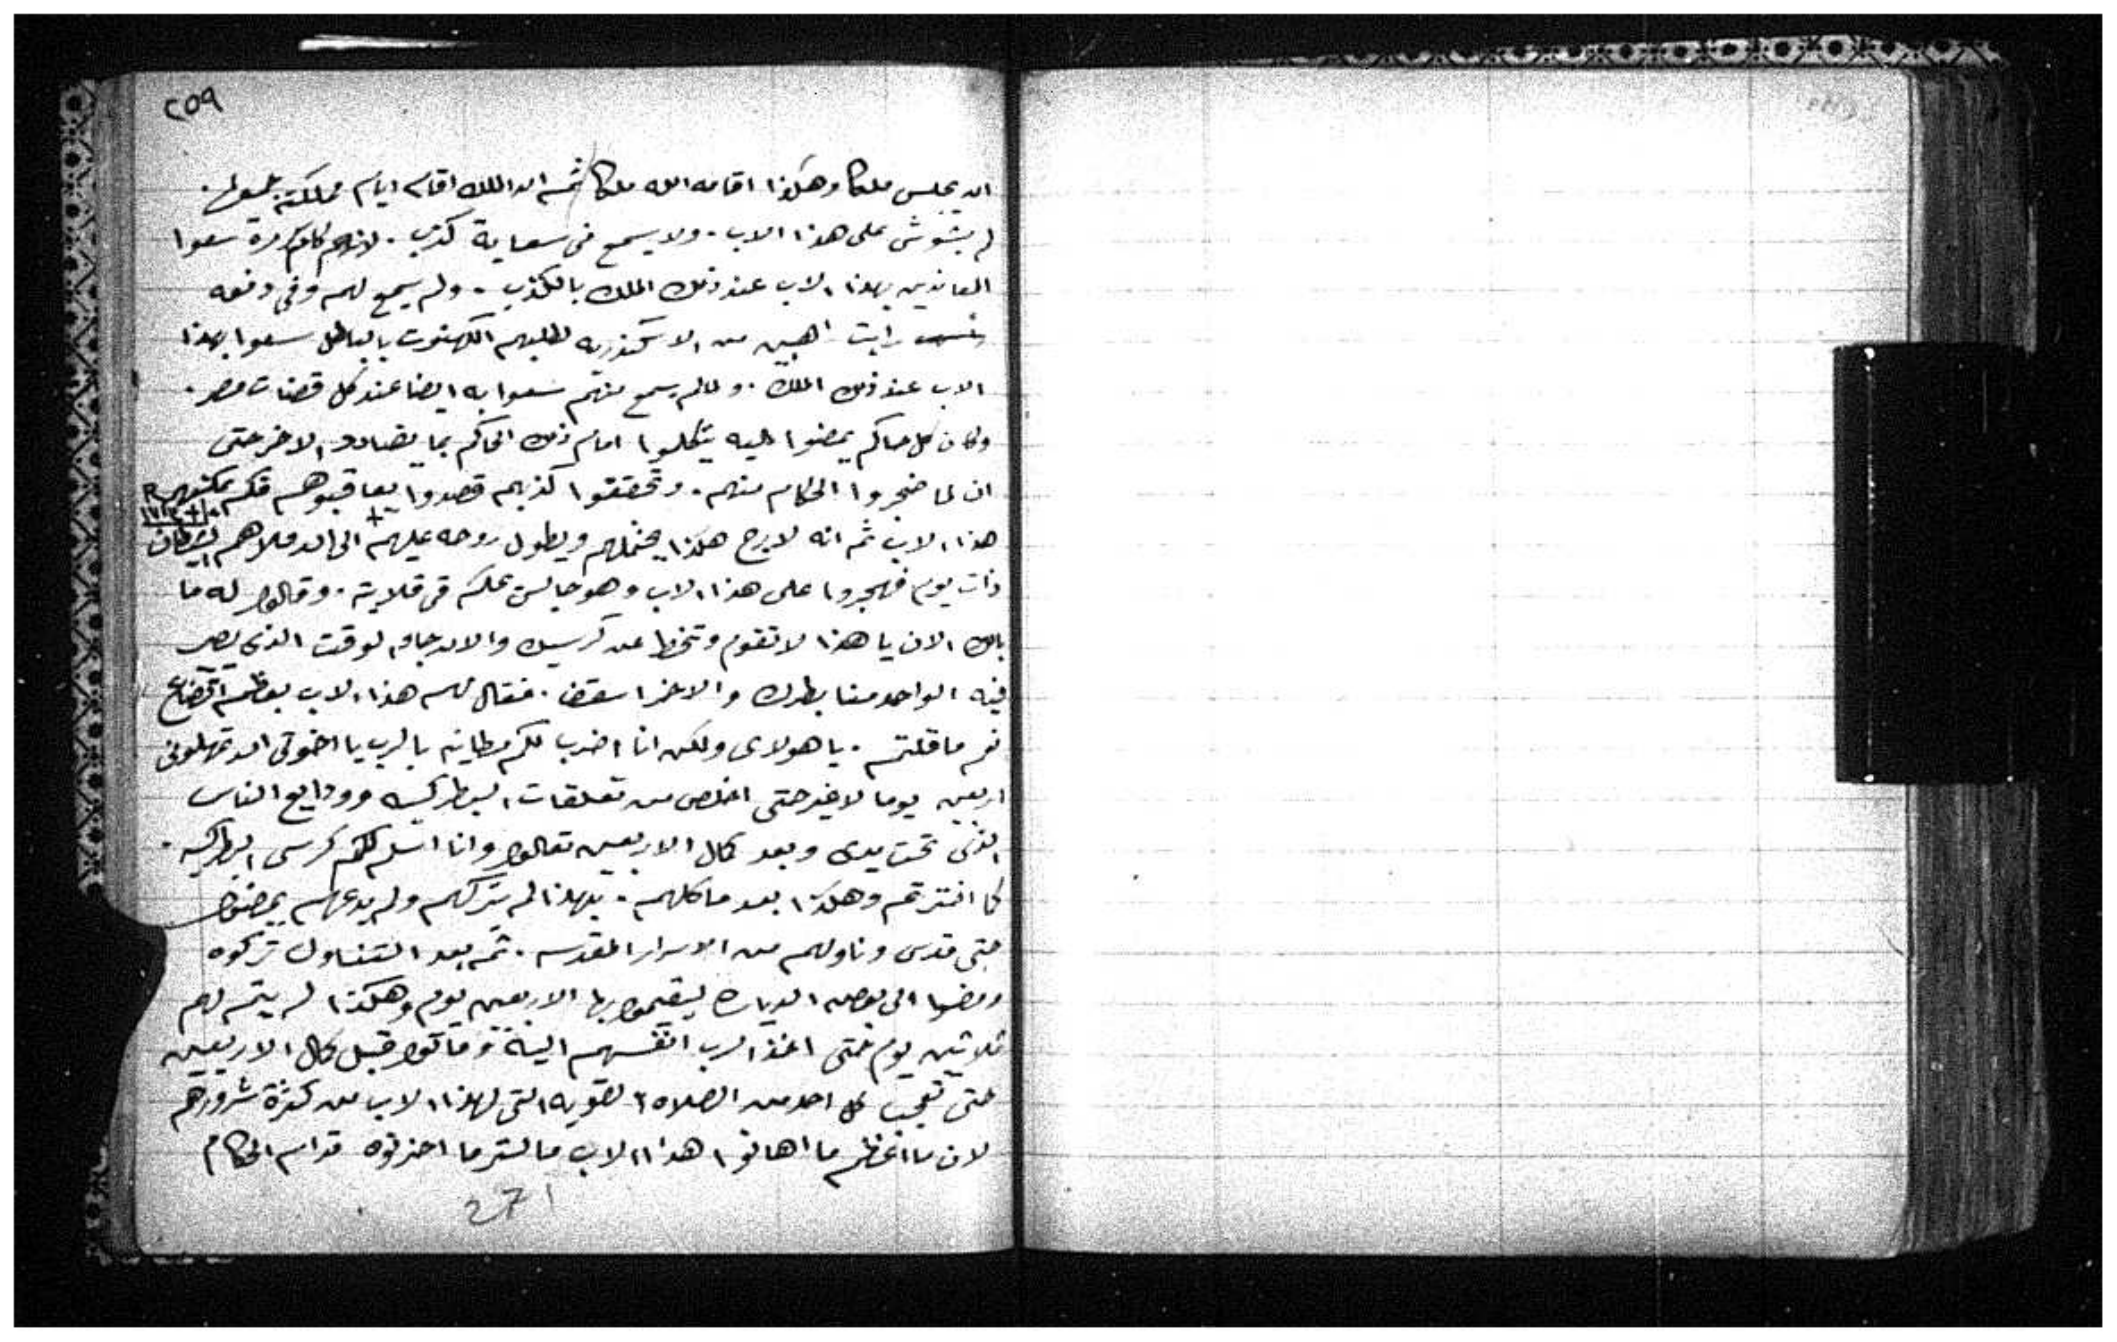 ٢٥٩
ان يجلس ملكا وهكذا اقامه الله ملكا ثم ان الملك اقام ايام مملكته جميعها.
لم يشوش على هذا الاب. ولا يسمع فى سعاية كذب. لانهم كام مرة سعوا
المعاندين بهذا الاب عند ذلك الملك بالكذب. ولم يسمع لهم وفى دفعه
رايت راهبين من الاسكندريه لطلبهم الكهنوت بالباطل سعوا بهذا
الاب عند ذلك الملك. ولما لم يسمع منهم سعوا به ايضا عند كل قضات مصر.
وكان كل حاكم يمضوا اليه يتكلموا امام ذلك الحاكم بما يضادد الاخر حتى
ان لما ضجروا الحكام منهم. وتحققوا كذبهم قصدوا يعاقبوهم فلم يمكنهم
هذا الاب ثم انه لا برح هكذا يحتملهم ويطول روحه عليهم الى ان ملاهم الشيطان
ذات يوم فهجروا على هذا الاب وهو جالس عندكم فى قلايته. وقالوا له ما
بالك الان يا هذا لا تقوم وتنحط عن كرسيك والان جاء الوقت الذى نصير
فيه الواحد منا بطرك والاخر اسقف. فقال لهم هذا الاب بعظم اتضاع
نعم ما قلتم. يا هولاى ولكن انا اضرب لكم مطانيه بالرب يا اخوتى ان تمهلونى
اربعين يوما لا غير حتى اخلص من تعلقات البطركيه وودايع الناس
الذى تحت يدى وبعد كمال الاربعين تعالوا وانا اسلم لكم كرسى البطركيه.
كما اخترتم وهكذا بعد ما كلمهم. بهذا لم يتركهم ولم يدعهم يمضوا
حتى قدس وناولهم من الاسرار المقدسه. ثم بعد التناول تركوه
ومضوا الى بعض الدياره ليقيموا بها الاربعين يوم وهكذا لم يتم لهم
ثلاثين يوم حتى اخذ الرب انفسهم اليه وماتوا قبل كمال الاربعين
حتى تعجب كل احد من الصلاه القويه التى لهذا الاب من كثرة شرورهم
لان ما اعظم ما اهانوا هذا الاب ما اكثر ما احزنوه قدام الحكام
271